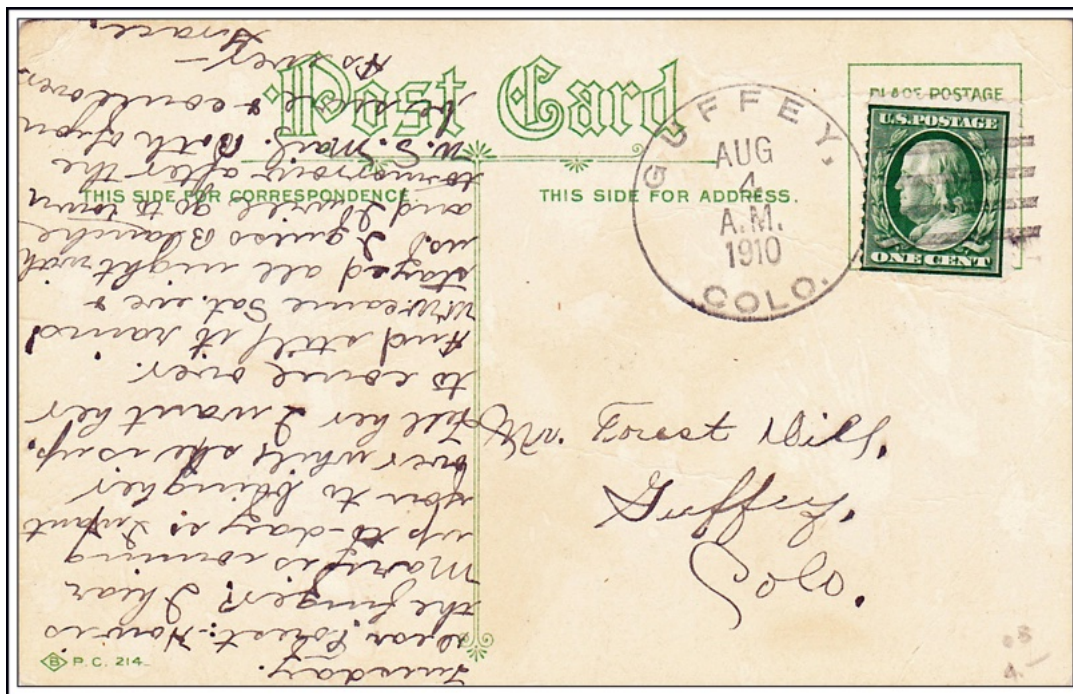 Post Card
THIS SIDE FOR CORRESPONDENCE.
THIS SIDE FOR ADDRESS.
PLACE POSTAGE
U.S. POSTAGE
ONE CENT
GUFFEY,
AUG
4
A.M.
1910
COLO.
Mr. Forest Dill,
Guffey,
Colo.
Tuesday.
Dear Forest:- How is
the finger? I hear
Mary is coming
up to-day so I want
you to bring her
over while she is up.
Tell her I want her
to come over.
And still it rains!
We came Sat. eve &
stayed all night with
us. I guess Blanche
and I will go to town
tomorrow after the
U.S. Mail. Both of you
be sure & come over
As ever -
Grace.
B P.C. 214